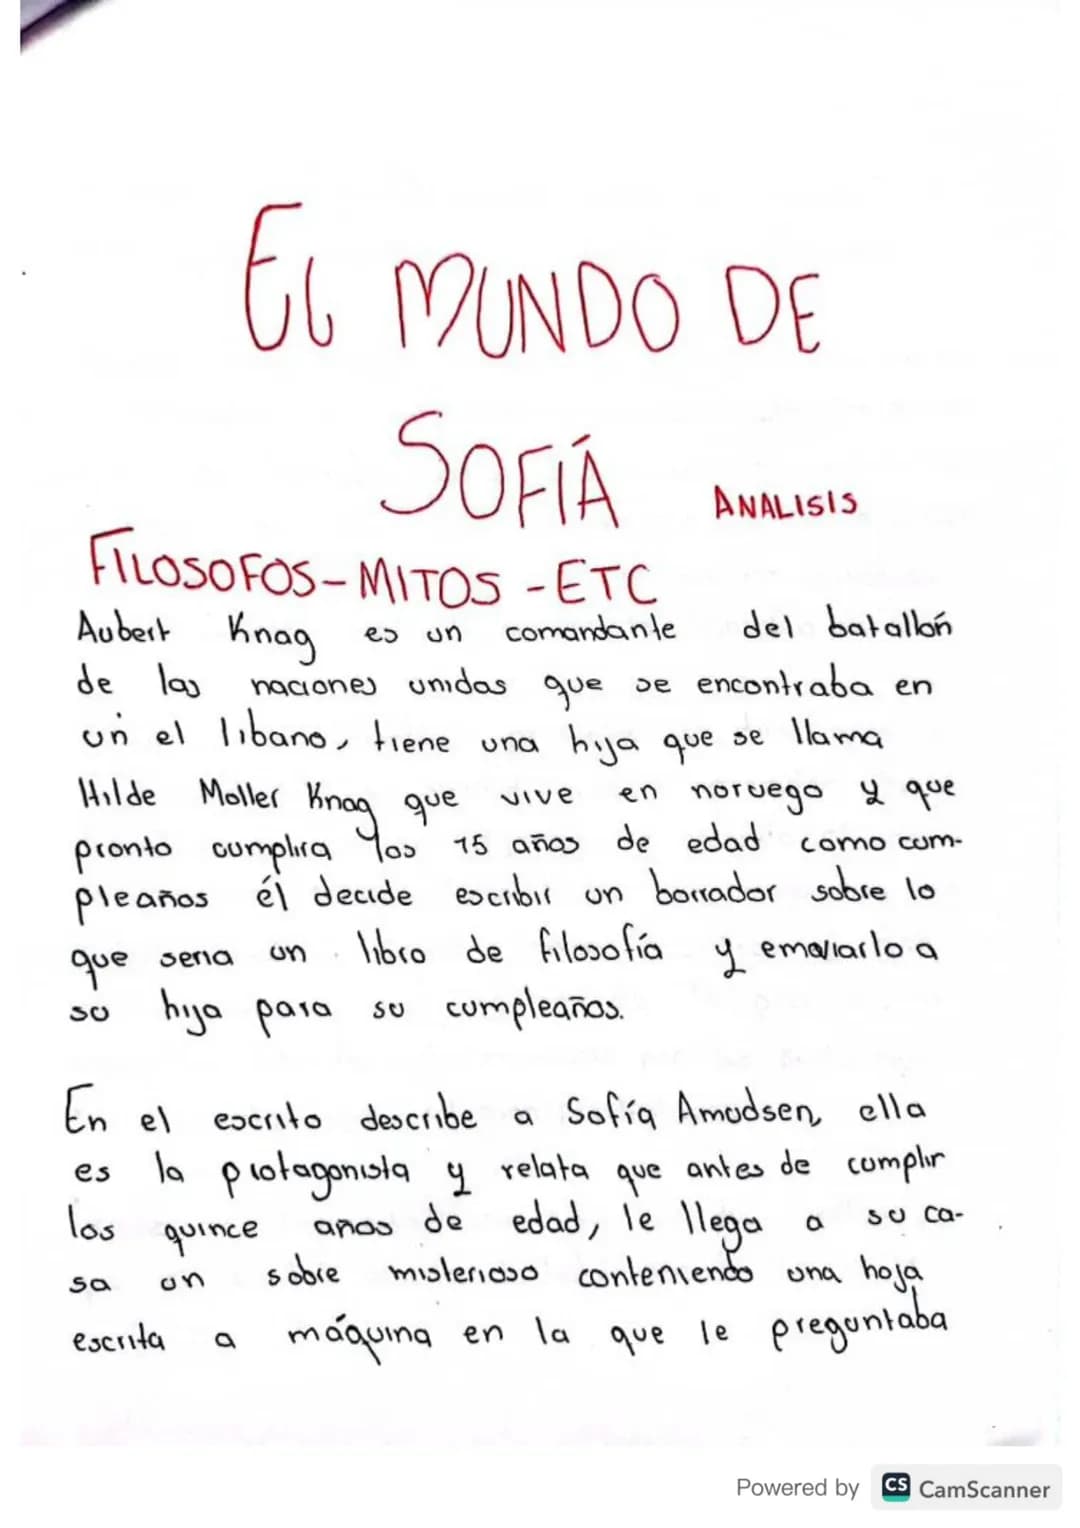 EL MUNDO DE
SOFÍA ANALISIS
FILOSOFOS-MITOS-ETC
Aubert Knag es un comandante del batallón
de las naciones unidas que se encontraba en
un el libano, tiene una hija que se llama
Hilde Moller Knag que vive en noruego y que
pronto cumplira los 15 años de edad como cum-
pleaños él decide escribir un borrador sobre lo
que seria un libro de filosofía y enviarlo a
su hija para su cumpleaños.
En el escrito describe a Sofía Amudsen, ella
es la protagonista y relata que antes de cumplir
los quince años de edad, le llega a su ca-
sa un sobre misterioso conteniendo una hoja
escrita a máquina en la que le preguntaba
Powered by CS CamScanner